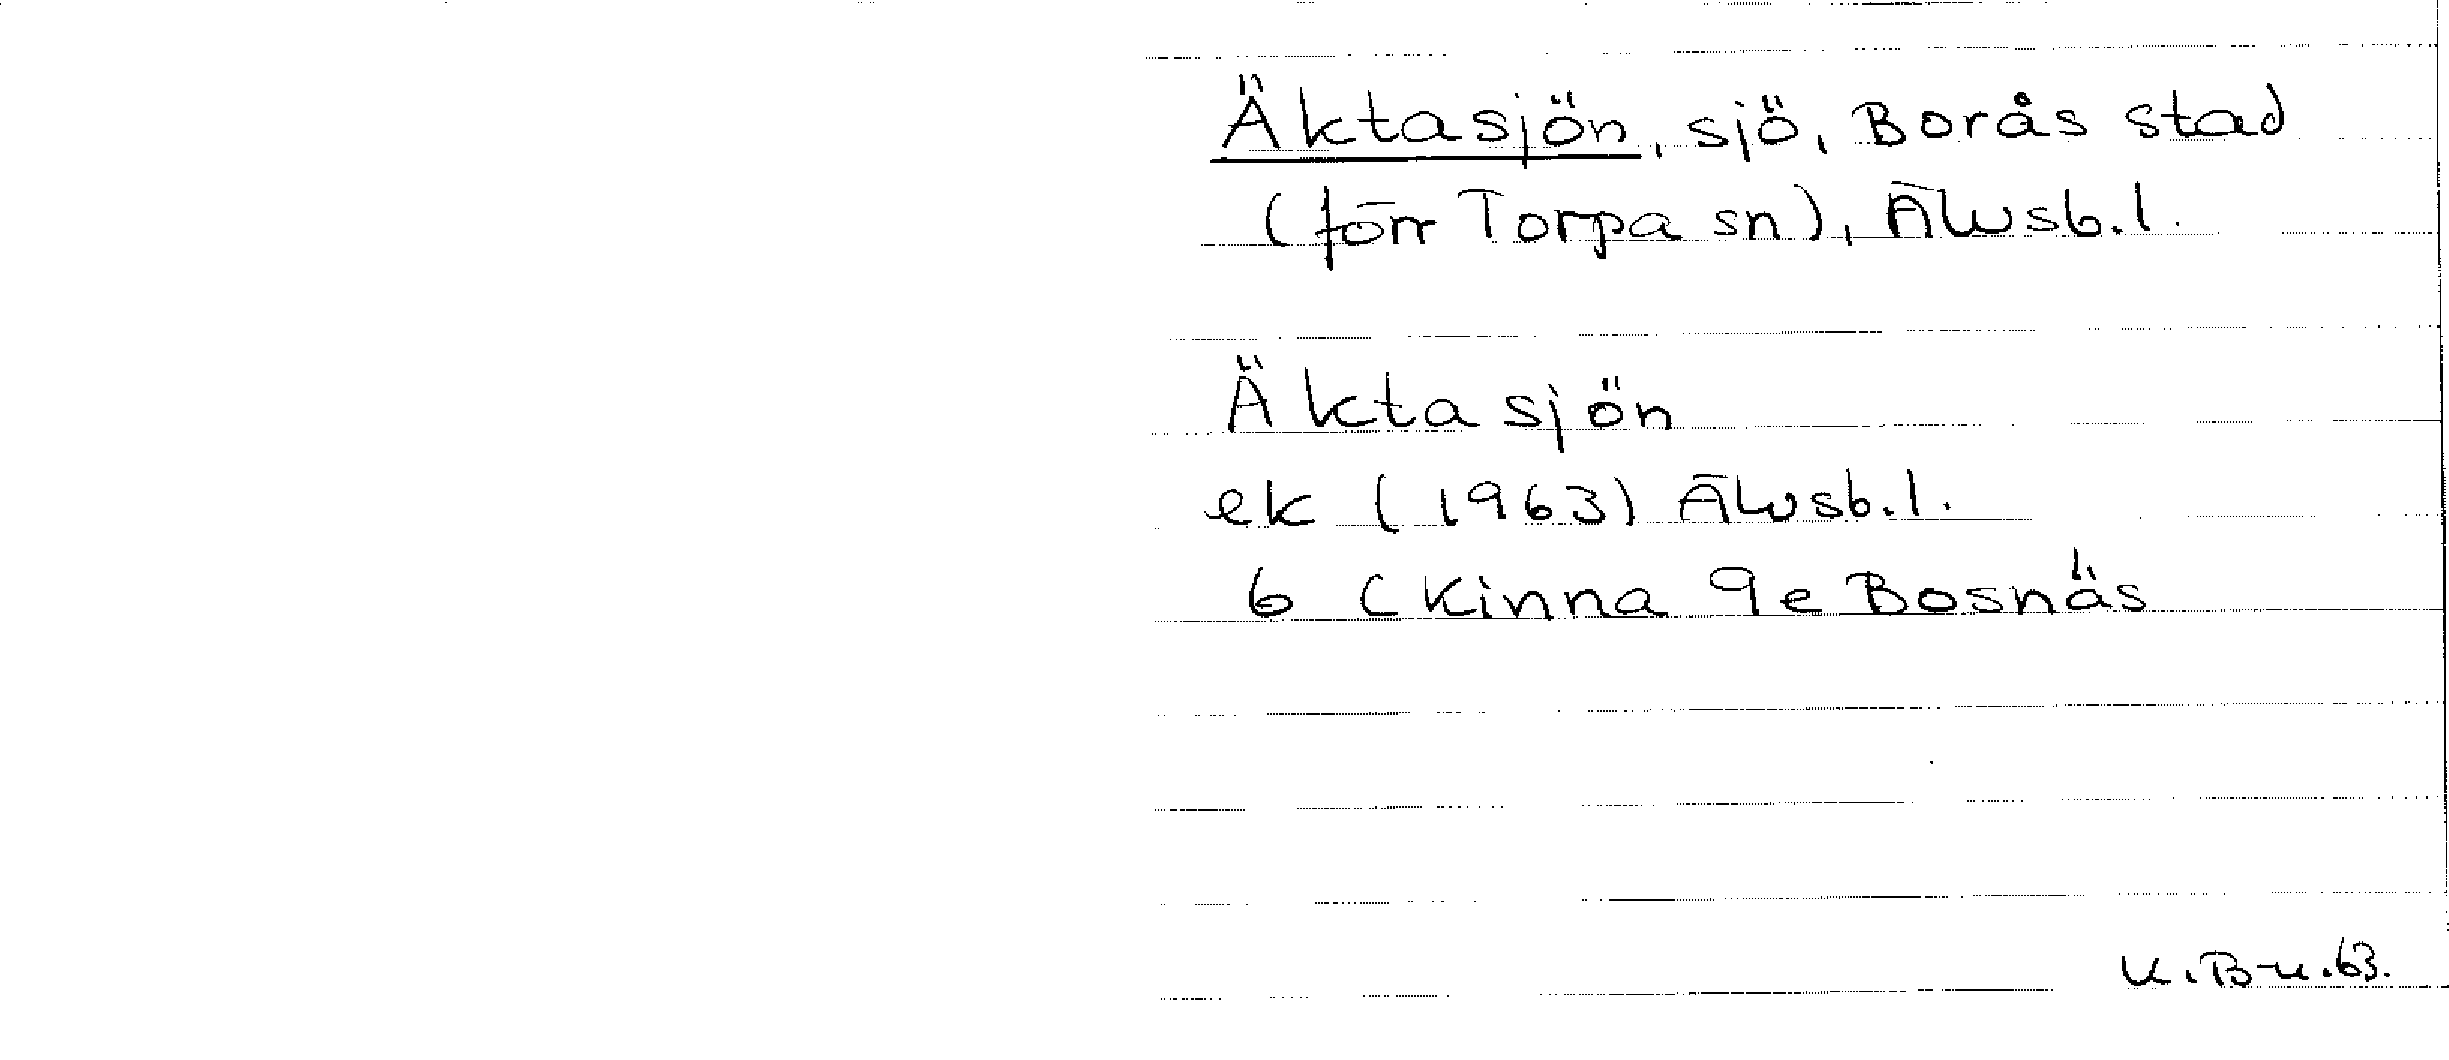 Äktasjön, sjö, Borås stad
(förr Torpa sn), Älvsb.l.
Äktasjön
ek (1963) Älvsb.l.
6 C Kinna 9e Bosnäs
K.B-n.63.